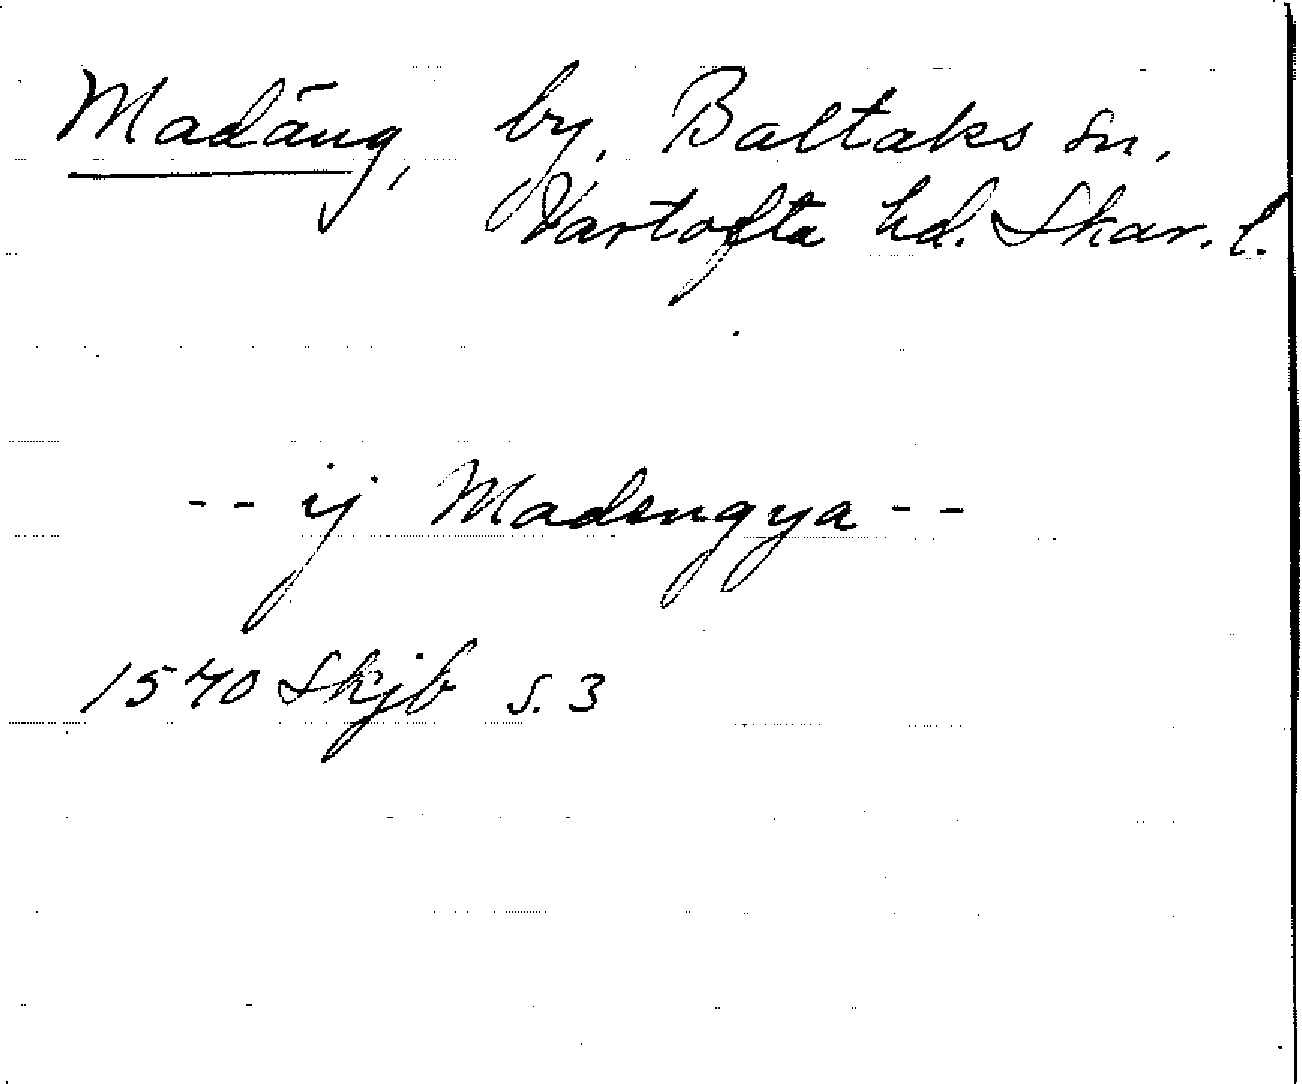 Madäng, by, Baltaks sn,
Vartofta hd. Skar. l.
-- ij Madengya --
1540 Skjb s. 3